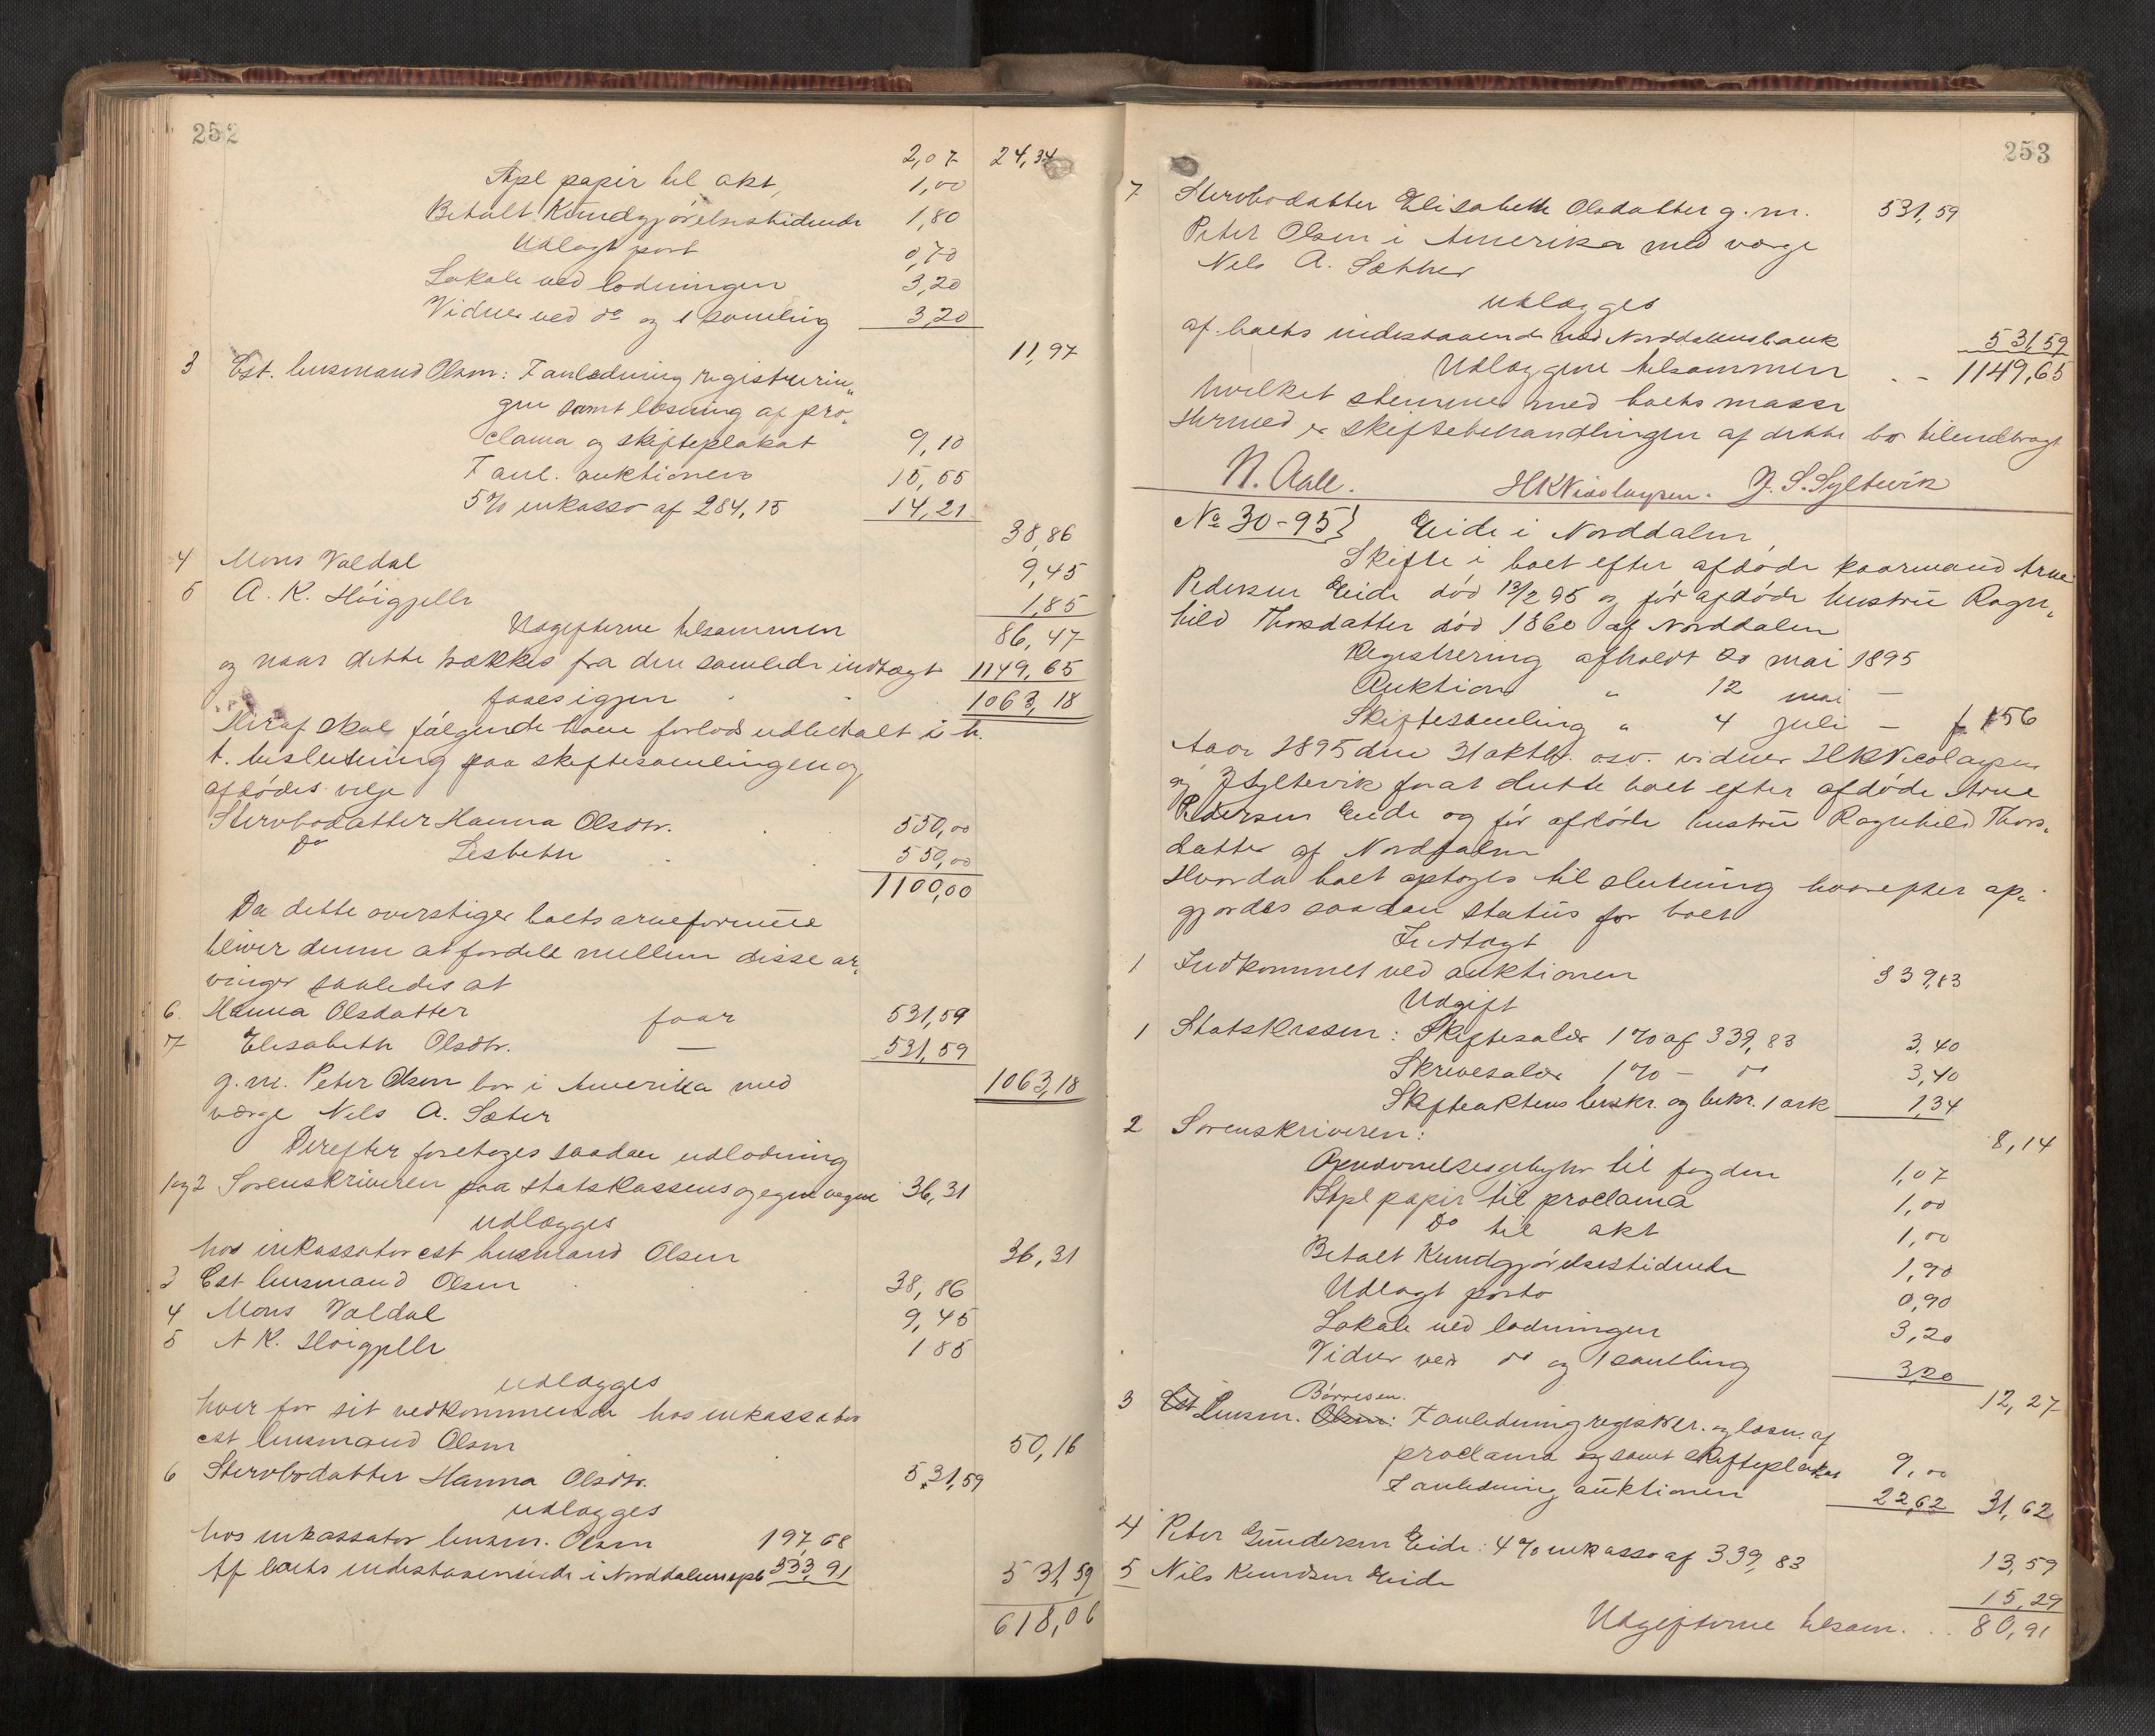 252
2,07 24,34
Stpl papir til akt, 1,00
Betalt Kundgjörelsestidende 1,80
Udlagt port 0,70
Lokale ved lodningen 3,20
Vidner ved do og 1 samling 3,20
11,97
3 Est. lensmand Olsen: I anledning registrerin„
gen samt læsning af pro„
clama og skifteplakat 9,10
I anl. auktionen 15,55
5% inkasso af 284,15 14,21
38,86
4 Mons Valdal 9,45
5 A. K. Höigjelle 1,85
Udgifterne tilsammen 86,47
og naar dette trækkes fra den samlede indtægt 1149,65
faaes igjen 1063,18
Heraf skal følgende have forlods udbetalt i h.
t. beslutning paa skiftesamlingen og
afdødes vilje
Stervbodatter Hanna Olsdtr. 550,00
Do Lisbeth 550,00
1100,00
Da dette overstiger boets arveformue
bliver denne at fordele mellem disse ar„
vinger saaledes at
6. Hanna Olsdatter faar 531,59
7 Elisabeth Olsdtr. — 531,59
g. m. Peter Olsen bor i Amerika med 1063,18
værge Nels A. Sæter
Derefter foretoges saadan udlodning
1 og 2 Sorenskriveren paa statskassens og egne vegne 36,31
udlægges
hos inkassator est lensmand Olsen 36,31
3 Est lensmand Olsen 38,86
4 Mons Valdal 9,45
5 A K. Höigjelle 1 85
udlægges
hver for sit vedkommende hos inkassator
est lensmand Olsen 50,16
6 Stervbodatter Hanna Olsdtr. 531,59
udlægges
hos inkassator lensm. Olsen 197,68
Af boets indestaaende i Norddalens spb 333,91 531,59
618,06
253
7 Stervbodatter Elisabeth Olsdatter g. m. 531,59
Peter Olsen i Amerika med værge
Nels A. Sæther
udlægges
af boets indestaaende ved Norddalensbank 531,59
Udlæggene tilsammen . - 1149,65
hvilket stemmer med boets masse
Hermed er skiftebehandlingen af dette bo tilendbragt
N. Aall. HKNicolaysen. J. S. Syltevik
No 30-95} Eide i Norddalen
Skifte i boet efter afdöde kaarmand Arne
Pedersen Eide död 13/2 95 og för afdöde hustru Ragn„
hild Thorsdatter död 1860 af Norddalen
Registrering afholdt 20 mai 1895
Auktion „ 12 mai —
Skiftesamling „ 4 juli — f 156
Aar 1895 den 31 oktbr. osv. vidner HKNicolaysen
og JSyltevik forat slutte boet efter afdöde Arne
Pedersen Eide og för afdöde hustru Ragnhild Thors„
datter af Norddalen
Hvorda boet optoges til slutning hvorefter op„
gjordes saadan status for boet
Indtægt
1 Indkommet ved auktionen 339,83
Udgift
1 Statskassen: Skiftesalær 1% af 339,83 3,40
Skrivesalær 1% — do 3,40
Skifteaktens beskr. og bekr. 1 ark 1,34
8,14
2 Sorenskriveren:
til fogden 1,07
Stpl papir til proclama 1,00
Do til akt 1,00
Betalt Kundgjörelsestidende 1,90
Udlagt porto 0,90
Lokale ved lodningen 3,20
Vidner ved do og 1 samling 3,20
12,27
Börresen.
3 Est Lensm. Olsen: I anledning registrer. og læsn. af
proclama og samt skifteplakat 9,00
I anledning auktionen 22,62 31,62
4 Peter Gundersen Eide: 4% inkasso af 339,83 13,59
5 Nils Knudsen Eide 15,29
Udgifterne tilsam. . . 80,91